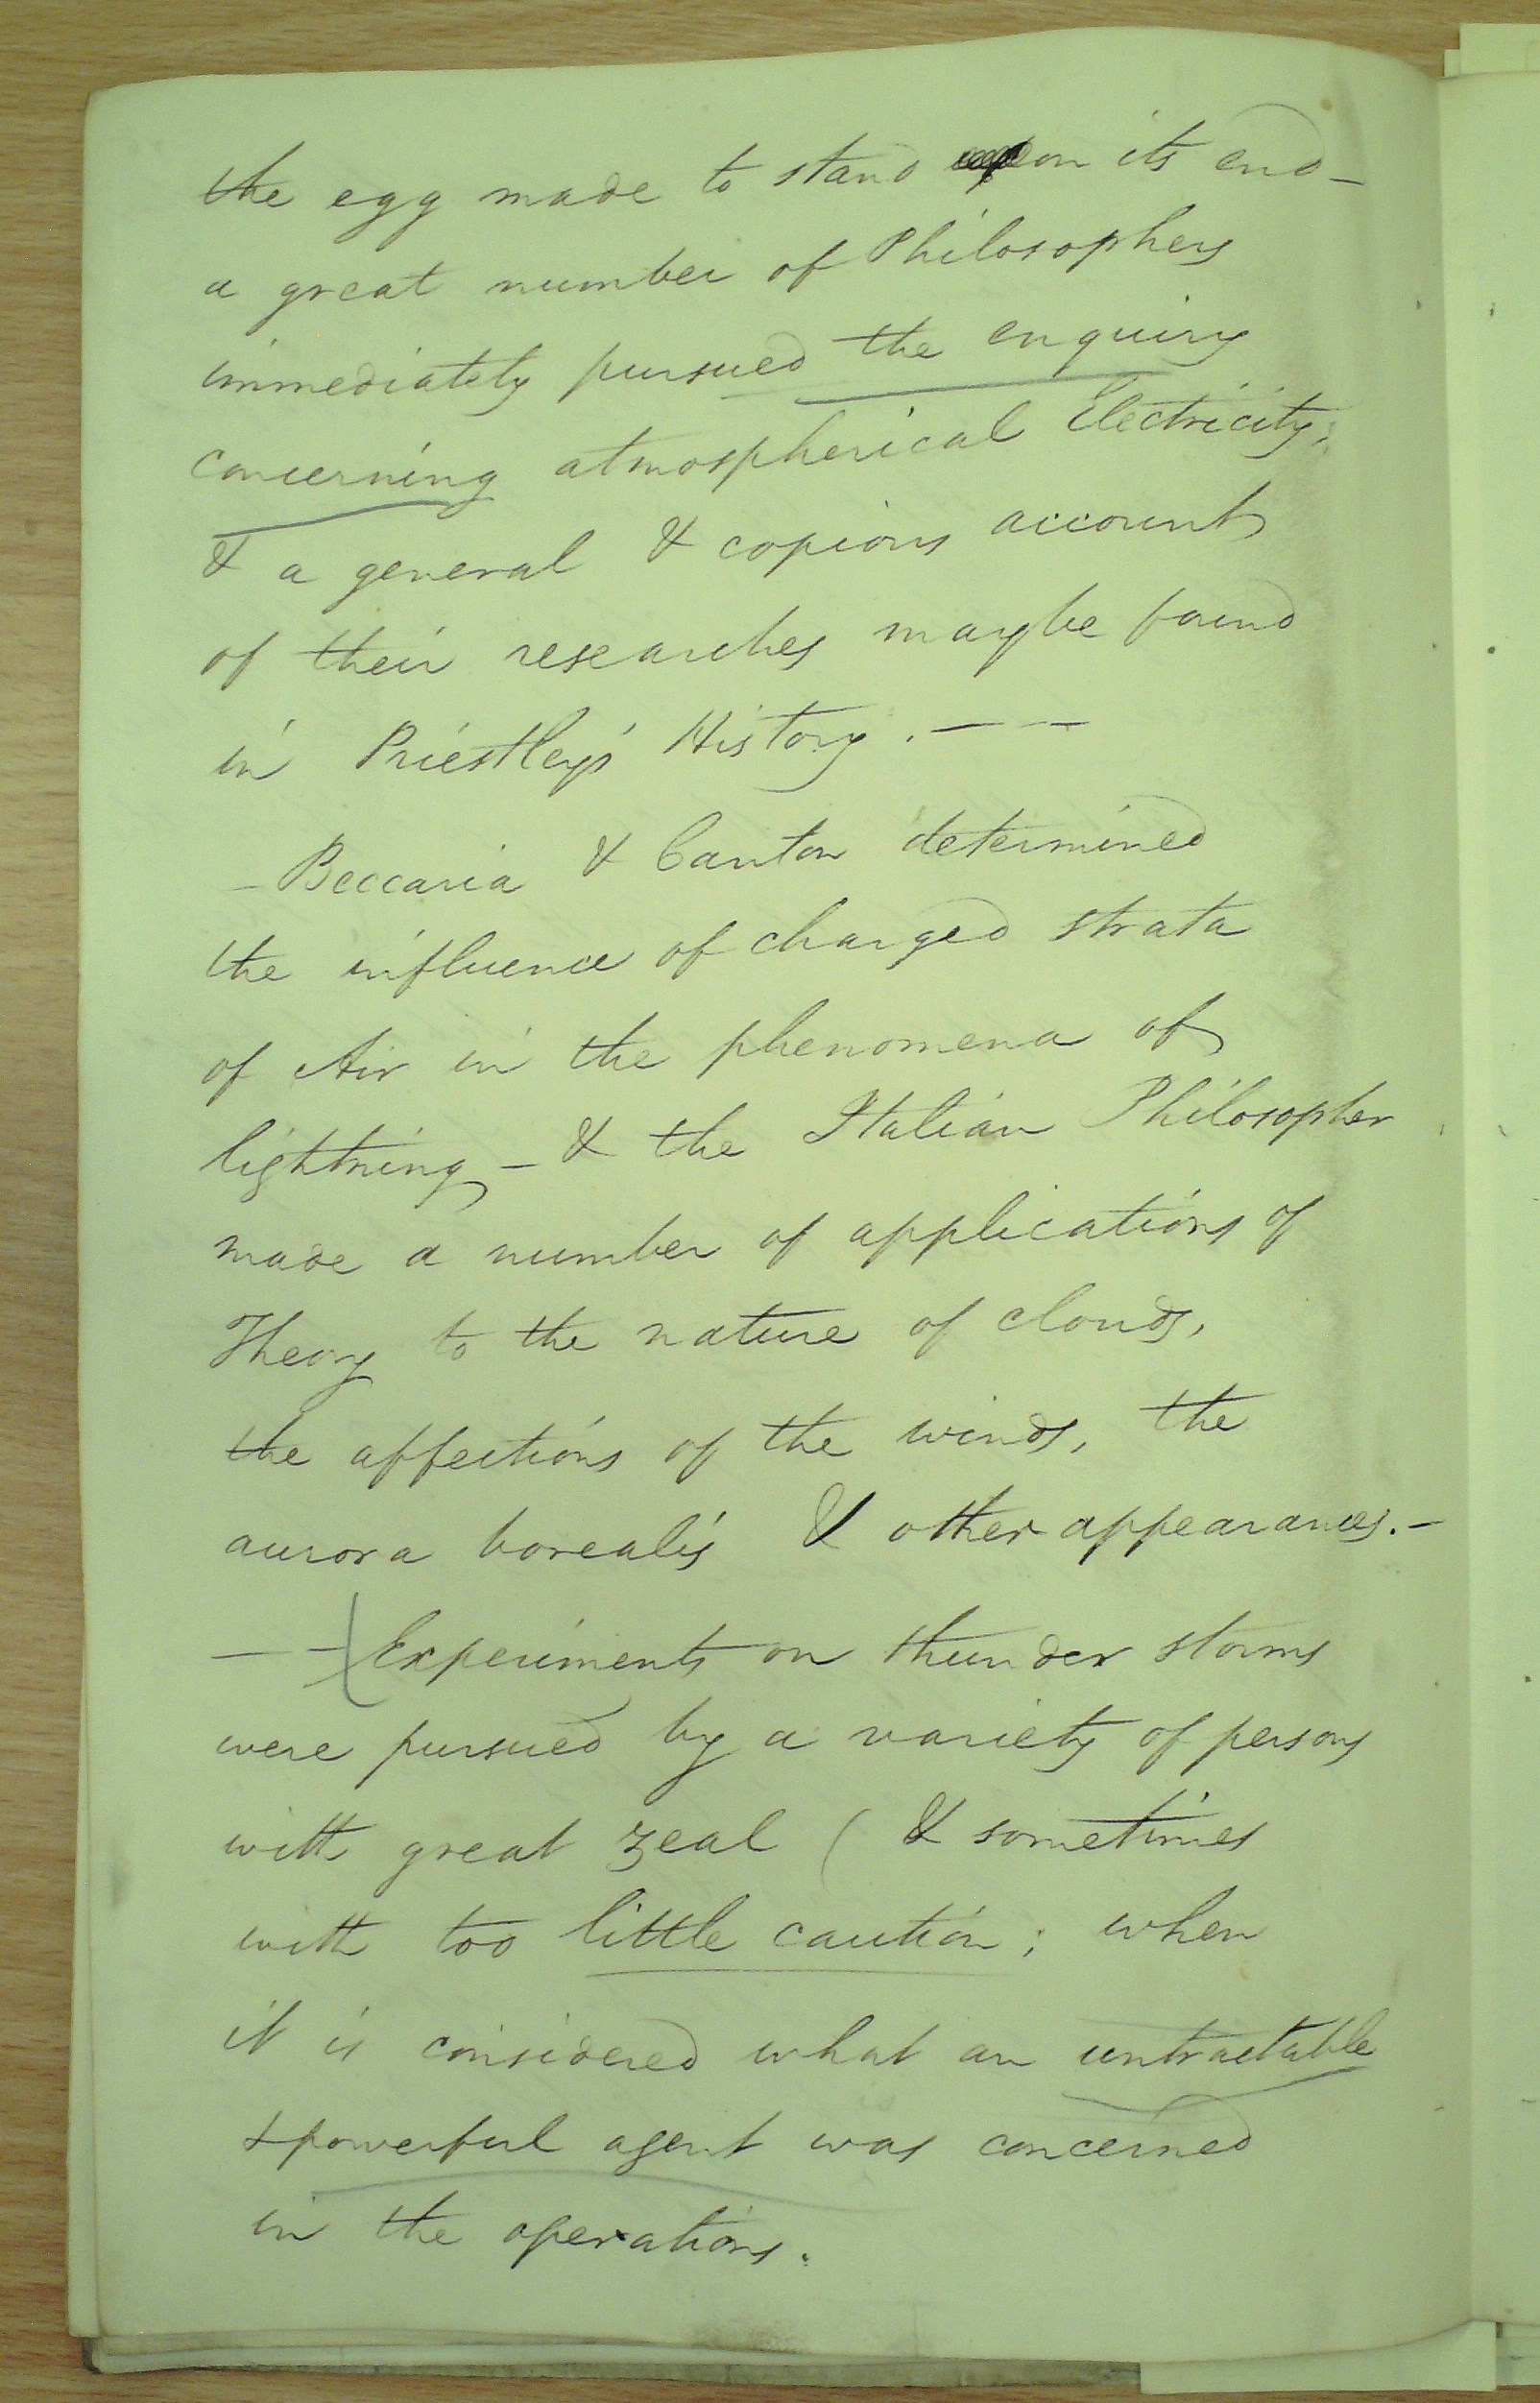 the egg made to stand on its end –
a great number of Philosophers
immediately pursued the enquiry
concerning atmospherical Electricity,
& a general & copious account
of their researches may be found
in Priestley's History. — —
– Beccaria & Canton determined
the influence of charged strata
of Air in the phenomena of
lightning – & the Italian Philosopher
made a number of applications of
Theory to the nature of clouds,
the affections of the winds, the
aurora borealis & other appearances. –
— – Experiments on thunder storms
were pursued by a variety of persons
with great zeal ( & sometimes
with too little caution ; when
it is considered what an untractable
& powerful agent was concerned
in the operations.